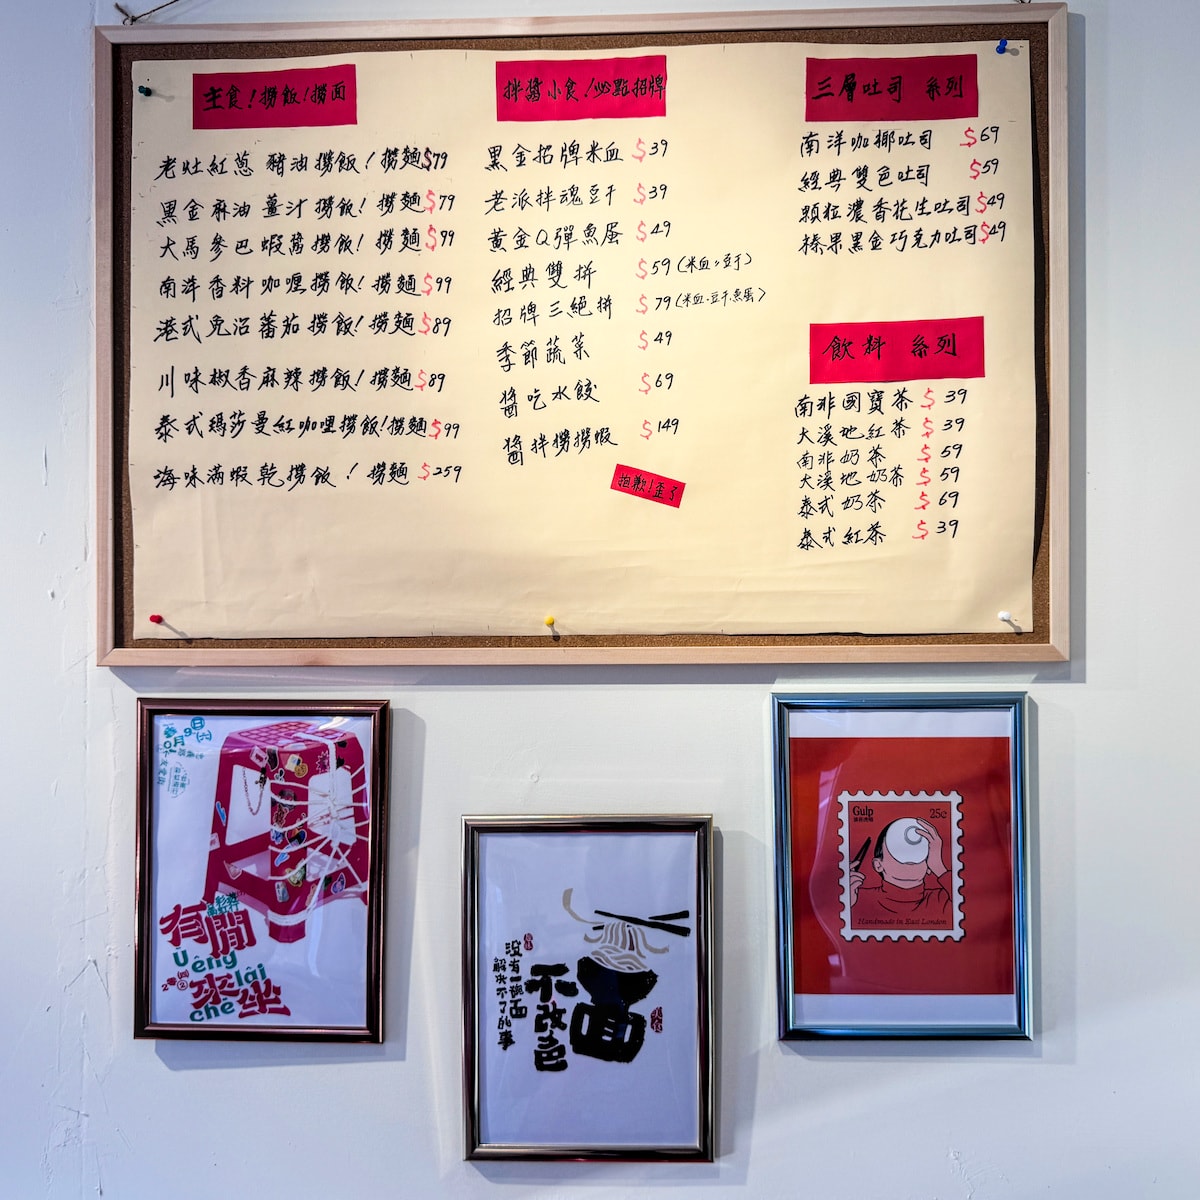 主食!撈飯!撈面
老灶紅蔥豬油撈飯!撈麵$79
黑金麻油薑汁撈飯!撈麵$79
大馬參巴蝦醬撈飯!撈麵$99
南洋香料咖喱撈飯!撈麵$99
港式免治蕃茄撈飯!撈麵$89
川味椒香麻辣撈飯!撈麵$89
泰式瑪莎曼紅咖哩撈飯!撈麵$99
海味滿蝦乾撈飯!撈麵$259
拌醬小食!必點招牌
黑金招牌米血$39
老派拌魂豆干$39
黃金Q彈魚蛋$49
經典雙拼$59(米血、豆干)
招牌三絕拼$79(米血、豆干、魚蛋)
季節蔬菜$49
醬吃水餃$69
醬拌撈撈蝦$149
抱歉!歪了
三層吐司 系列
南洋咖椰吐司$69
經典雙色吐司$59
顆粒濃香花生吐司$49
榛果黑金巧克力吐司$49
飲料 系列
南非國寶茶$39
大溪地紅茶$39
南非奶茶$59
大溪地奶茶$59
泰式奶茶$69
泰式紅茶$39
有閒
Uêng
來坐
lâi
chē
沒有一碗面
解決不了的事
不改色
面
Gulp
25c
Handmade in East London